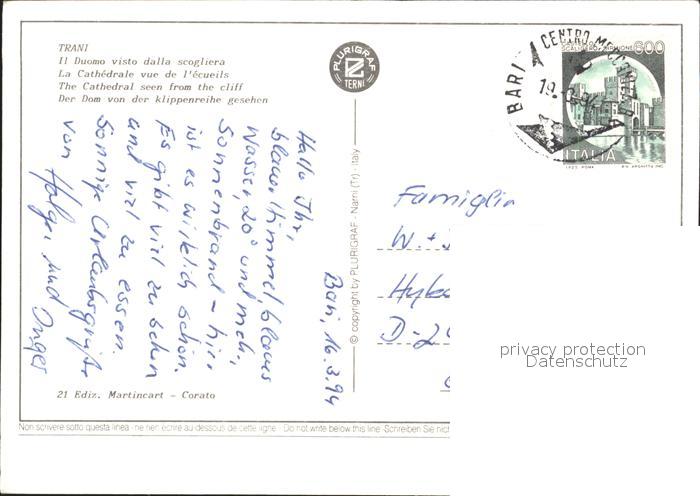 TRANI
Il Duomo visto dalla scogliera
La Cathédrale vue de l'écueils
The Cathedral seen from the cliff
Der Dom von der klippenreihe gesehen
PLURIGRAF
TERNI
BARI CENTRO
600
ITALIA
Bari, 16.3.94
Hallo Ihr,
blauer Himmel, blaues
Wasser, 20° und mehr,
Sonnenbrand – hier
ist es wirklich schön.
Es gibt viel zu sehen
und viel zu essen.
Sonnige Urlaubsgrüße
von Holger und Inger
© copyright by PLURIGRAF - Narni (Tr) - Italy
Famiglia
W. +
D-2
privacy protection
Datenschutz
21 Ediz. Martincart - Corato
Non scrivere sotto questa linea - ne rien écrire au dessous de cette ligne - Do not write below this line - Schreiben Sie nic